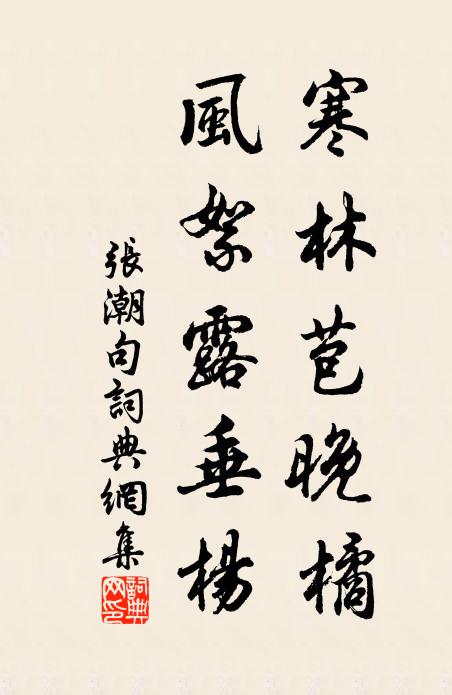 寒林苞晚橘
風絮露垂楊
張潮句詞典網集
詞典網印